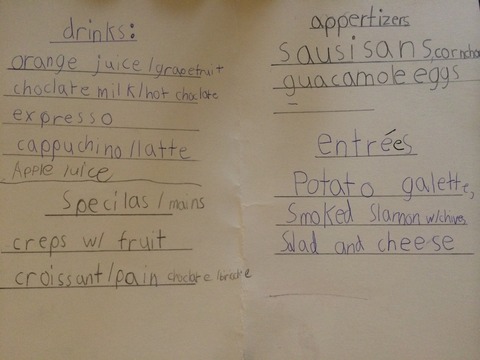 drinks:
orange juice/grapefruit
choclate milk/hot choclate
expresso
cappuchino/latte
Apple juice
Specilas/mains
creps w/ fruit
croissant/pain choclate
appertizers
sausisans,
guacamole eggs
entrées
Potato galette,
Smoked Slamon w/chives
Salad and cheese